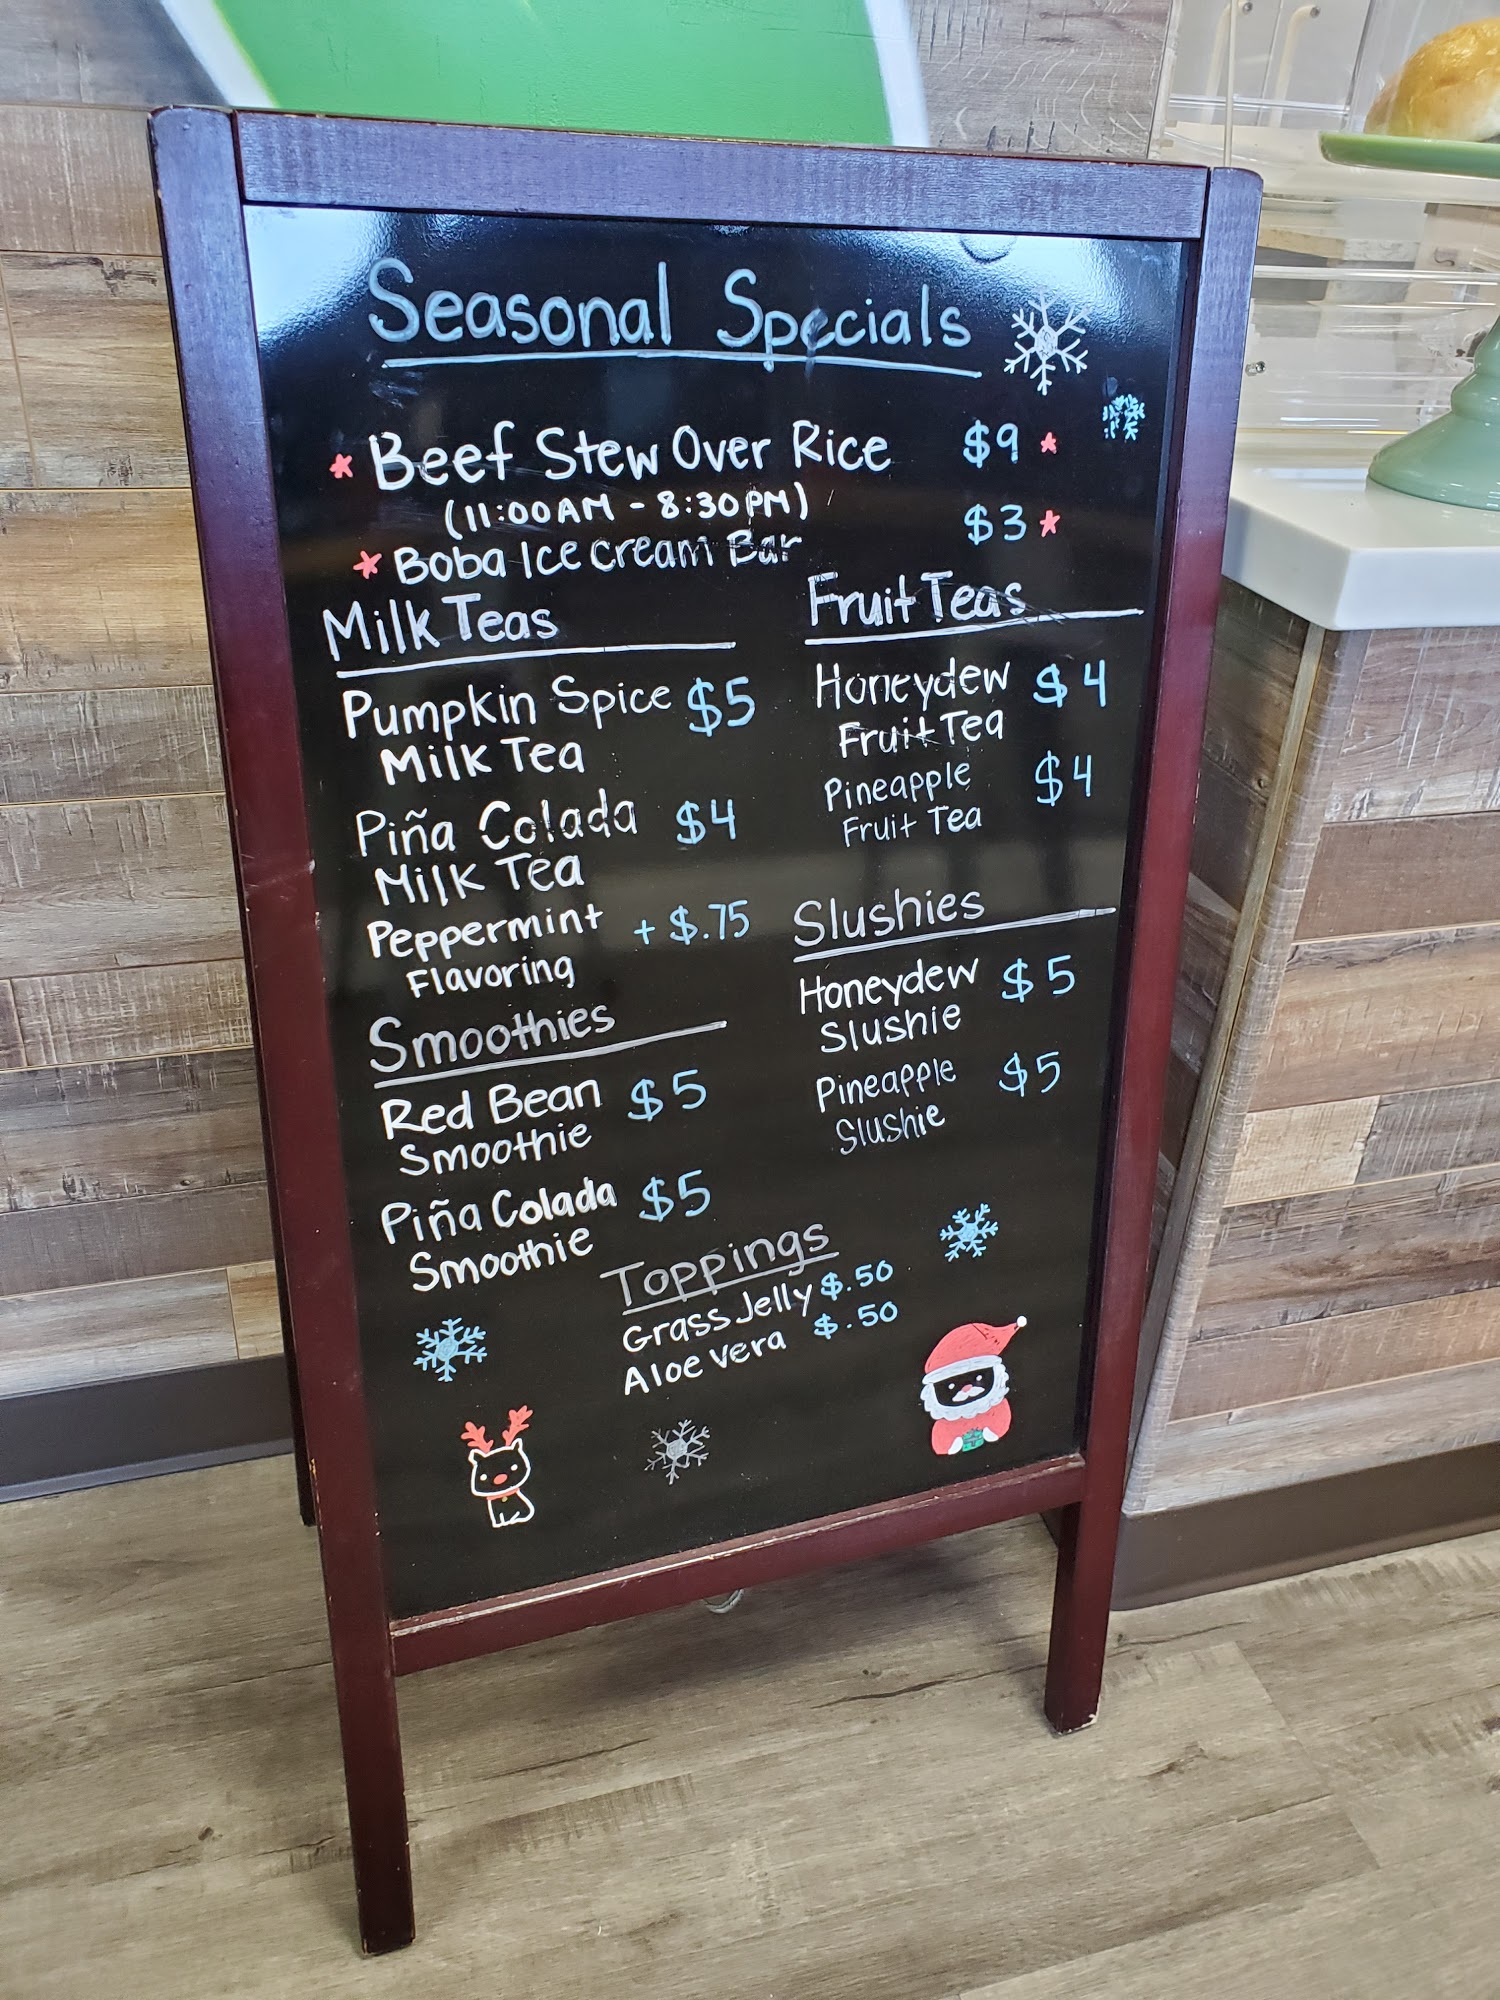 Seasonal Specials
* Beef Stew Over Rice $9 *
(11:00AM - 8:30PM)
* Boba Ice Cream Bar $3 *
Milk Teas
Pumpkin Spice $5
Milk Tea
Piña Colada $4
Milk Tea
Peppermint + $.75
Flavoring
Smoothies
Red Bean $5
Smoothie
Piña Colada $5
Smoothie
Fruit Teas
Honeydew $4
Fruit Tea
Pineapple $4
Fruit Tea
Slushies
Honeydew $5
Slushie
Pineapple $5
Slushie
Toppings
Grass Jelly $.50
Aloe Vera $.50